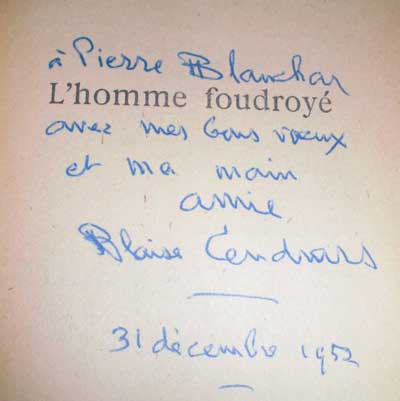 à Pierre Blanchar
L'homme foudroyé
avec mes bons vœux
et ma main
amie
Blaise Cendrars
31 décembre 1952